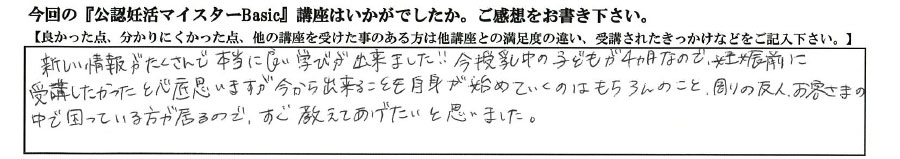 今回の『公認妊活マイスターBasic』講座はいかがでしたか。ご感想をお書き下さい。
【良かった点、分かりにくかった点、他の講座を受けた事のある方は他講座との満足度の違い、受講されたきっかけなどをご記入下さい。】
新しい情報がたくさんで本当に良い学びが出来ました!! 今授乳中の子どもが4カ月なので、妊娠前に
受講したかったと心底思いますが今から出来ることを自身が始めていくのはもちろんのこと、周りの友人、お客さまの
中で困っている方が居るので、すぐ教えてあげたいと思いました。